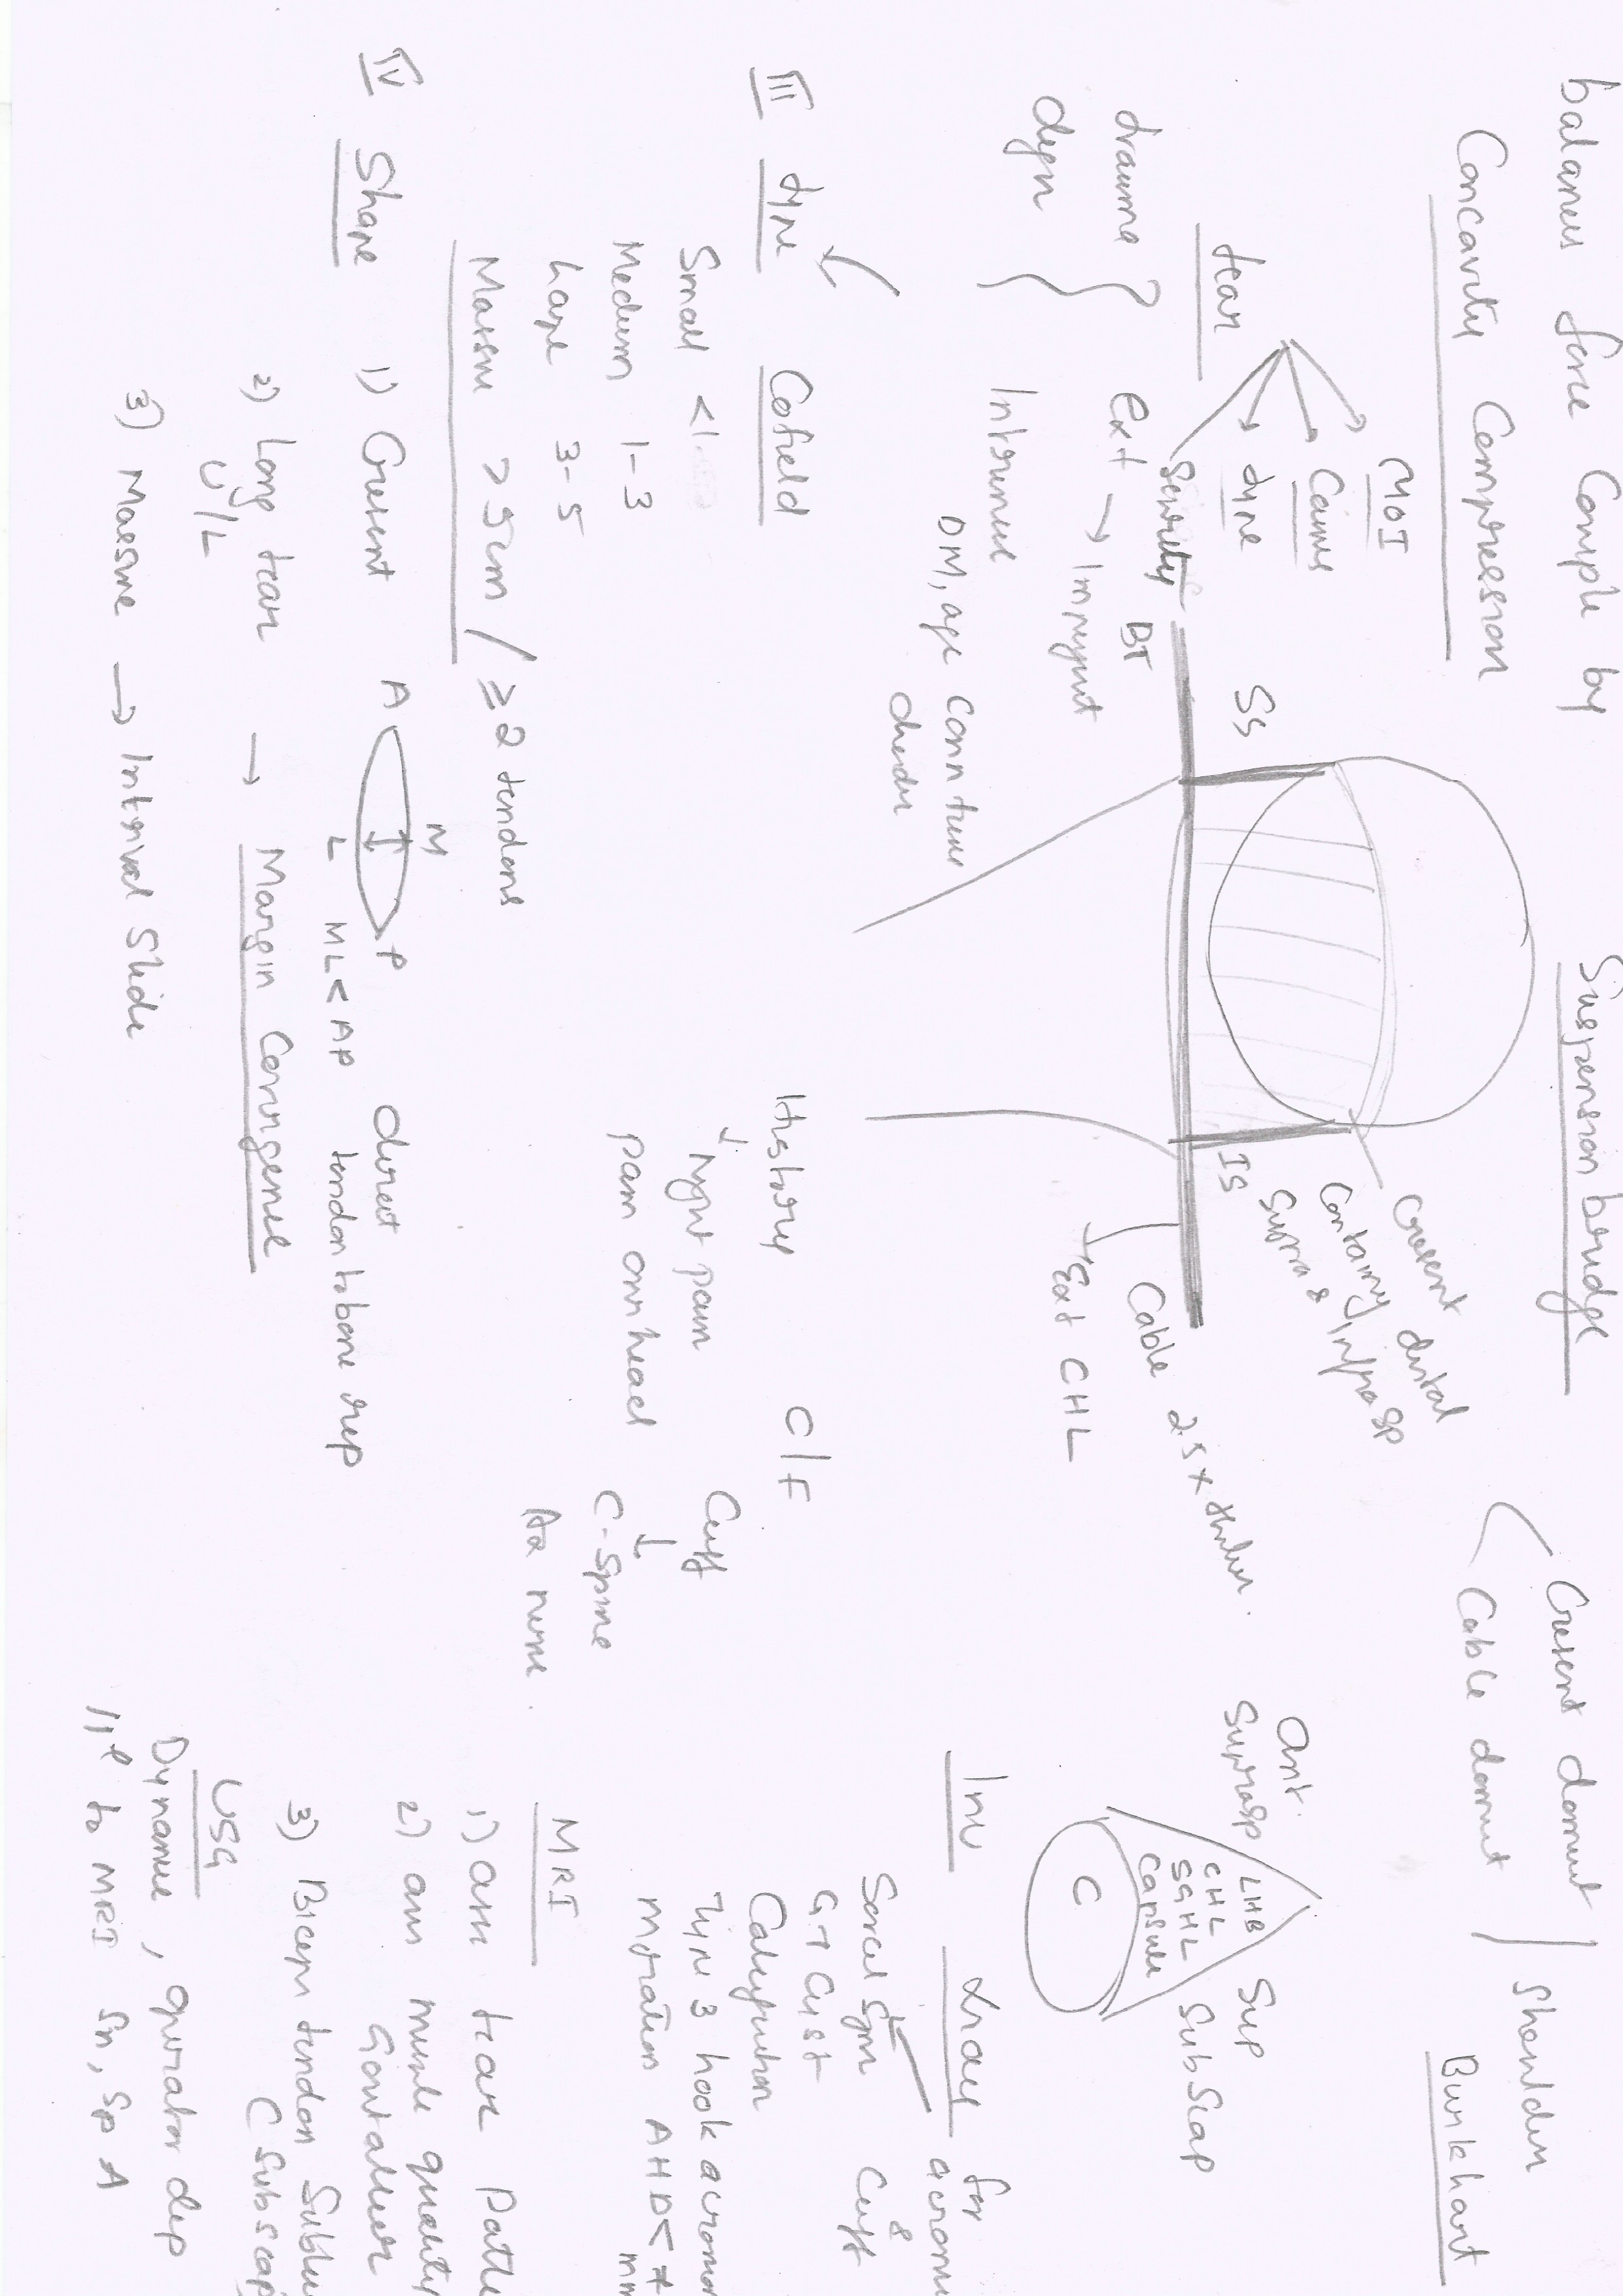 balances force couple by
Concavity Compression
Suspension bridge
Cresent domint
Cable domint
Shoulder
Burkhart
tear
MOI
Causes
type
Severity
trauma
degn
Ext → Impingmt
Intrinsic
DM, age conn tissue
disorder
SS
BT
IS
Cresent distal
Containing
Supra & Infrasp
Cable 2.5x thicker.
Ext CHL
Ant.
Suprasp
LHB
CHL
SGHL
Capsule
C
Sup
Subscap
III type
Cofield
Small <1
Medium 1-3
Large 3-5
Massive >5cm / ≥2 tendons
IV Shape
1) Cresent
A
M
L
P
ML < AP
direct
tendon to bone rep
2) Long tear
U/L
→ Margin Convergence
3) Massive → Interval Slide
History
Night pain
pain overhead
C/F
Cuff
C-Spine
Ax nerve.
Inv
Xray for
acromi
&
Cuff
Sorcel Sign
GT Cyst
Calcification
Type 3 hook acromi
Migration AHD < 7
mm
MRI
1) ass tear patte
2) ass muscle quality
Goutallier
3) Biceps tendon Sublu
C Subscap
USG
Dynamic, operator dep
11ᵉˡ to MRI Sn, Sp A